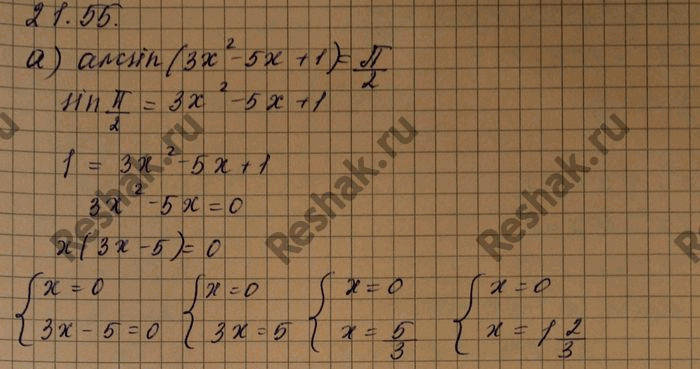 21.55.
а) arcsin(3x² - 5x + 1) = π/2
sin π/2 = 3x² - 5x + 1
1 = 3x² - 5x + 1
3x² - 5x = 0
x(3x - 5) = 0
{ x = 0 { x = 0 { x = 0 { x = 0
3x - 5 = 0 3x = 5 x = 5/3 x = 1 2/3
Reshak.ru
Reshak.ru
Reshak.ru
Reshak.ru
Reshak.ru